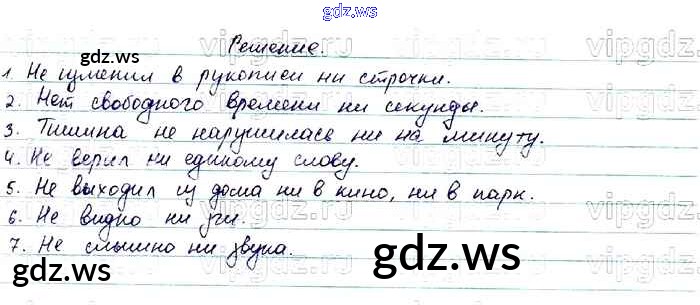 gdz.ws
Решение
gdz.ws gdz.ws
1. Не изменил в рукописи ни строчки.
2. Нет свободного времени ни секунды.
3. Тишина не нарушилась ни на минуту.
4. Не верил ни единому слову.
5. Не выходил из дома ни в кино, ни в парк.
6. Не видно ни зги.
7. Не слышно ни звука.
gdz.ws gdz.ws
vipgdz.ru